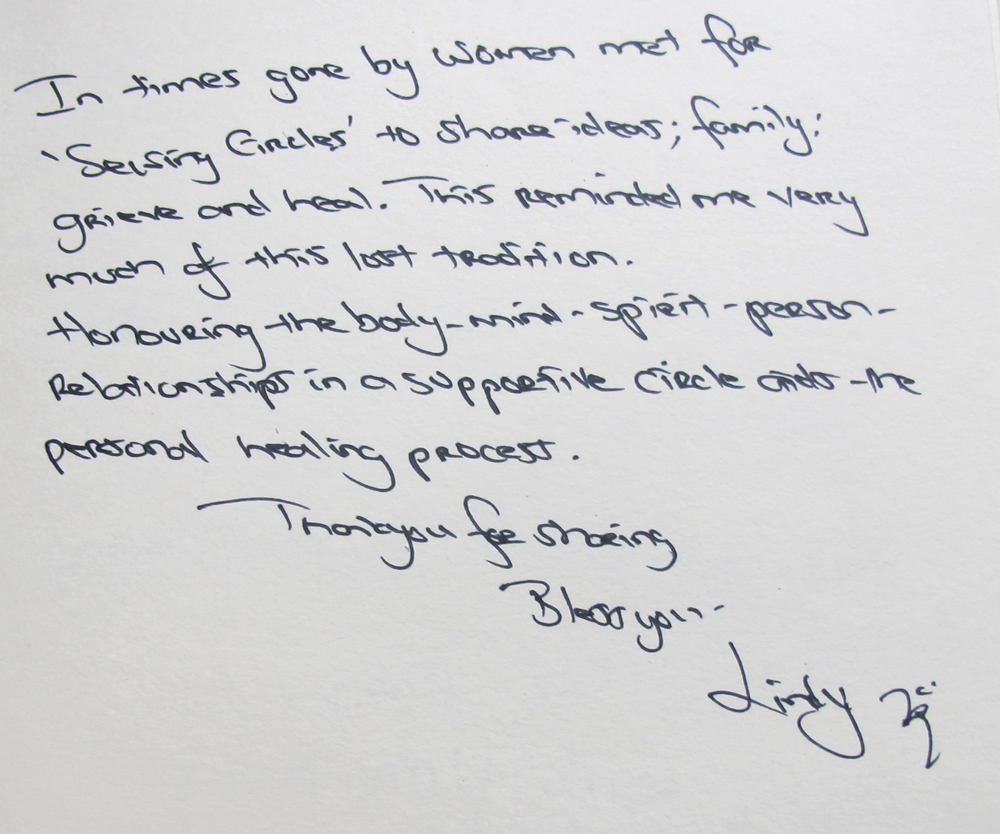 In times gone by women met for
'Sewing Circles' to share ideas; family;
grieve and heal. This reminded me very
much of this lost tradition.
Honouring the body-mind-spirit-person-
Relationships in a supportive circle aids the
personal healing process.
Thankyou for sharing
Bless you-
Lindy